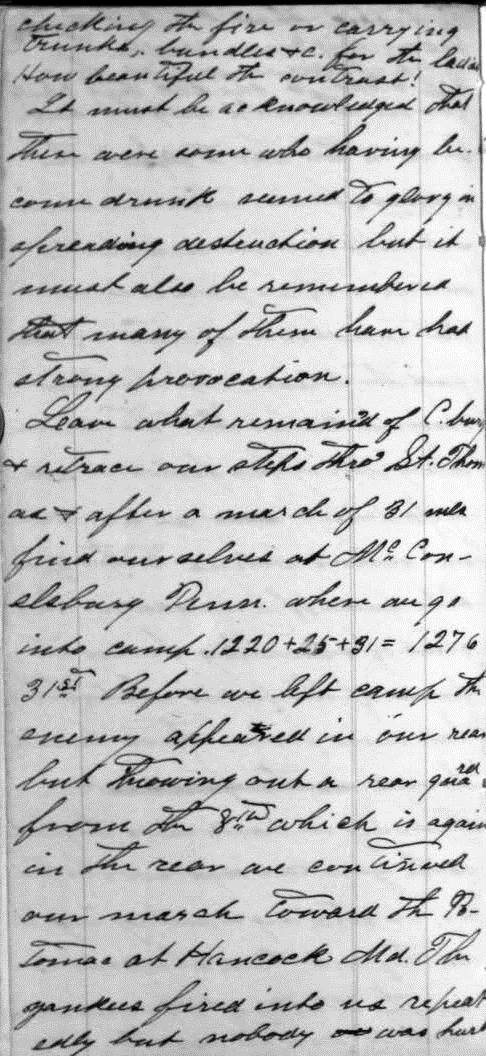 checking the fire or carrying
trunks, bundles &c. for the ladies
How beautiful the contrast!
It must be acknowledged that
there were some who having be-
come drunk seemed to glory in
spreading destruction but it
must also be remembered
that many of them have had
strong provocation.
Leave what remain'd of C.burg
& retrace our steps thro' St. Thom
as & after a march of 31 miles
find ourselves at McCon-
elsburg Penn. where we go
into camp. 1220+25+31= 1276
31st Before we left camp the
enemy appeared in our rear
but throwing out a rear guard
from the 8th which is again
in the rear we continued
our march toward the Po-
tomac at Hancock Md. The
yankees fired into us repeat
edly but nobody was hurt